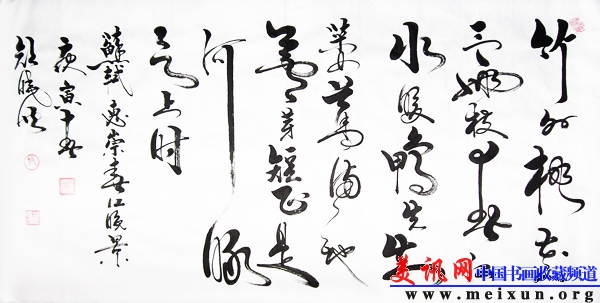 竹外桃花
三兩枝春江
水暖鴨先知
蔞蒿滿地
蘆芽短正是
河豚
欲上时
蘇軾惠崇春江晓景
庚寅
美讯网中国书画收藏频道
www.meixun.org